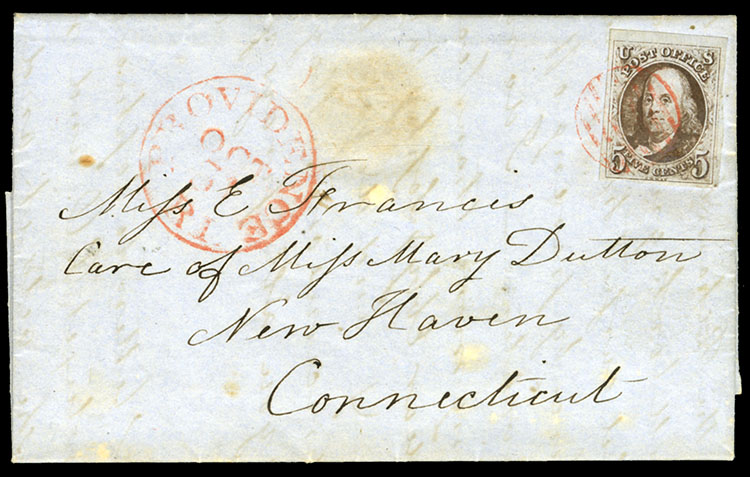 U S
POST OFFICE
5 FIVE CENTS 5
PROVIDENCE
OCT
R.I.
Miss E Francis
Care of Miss Mary Dutton
New Haven
Connecticut